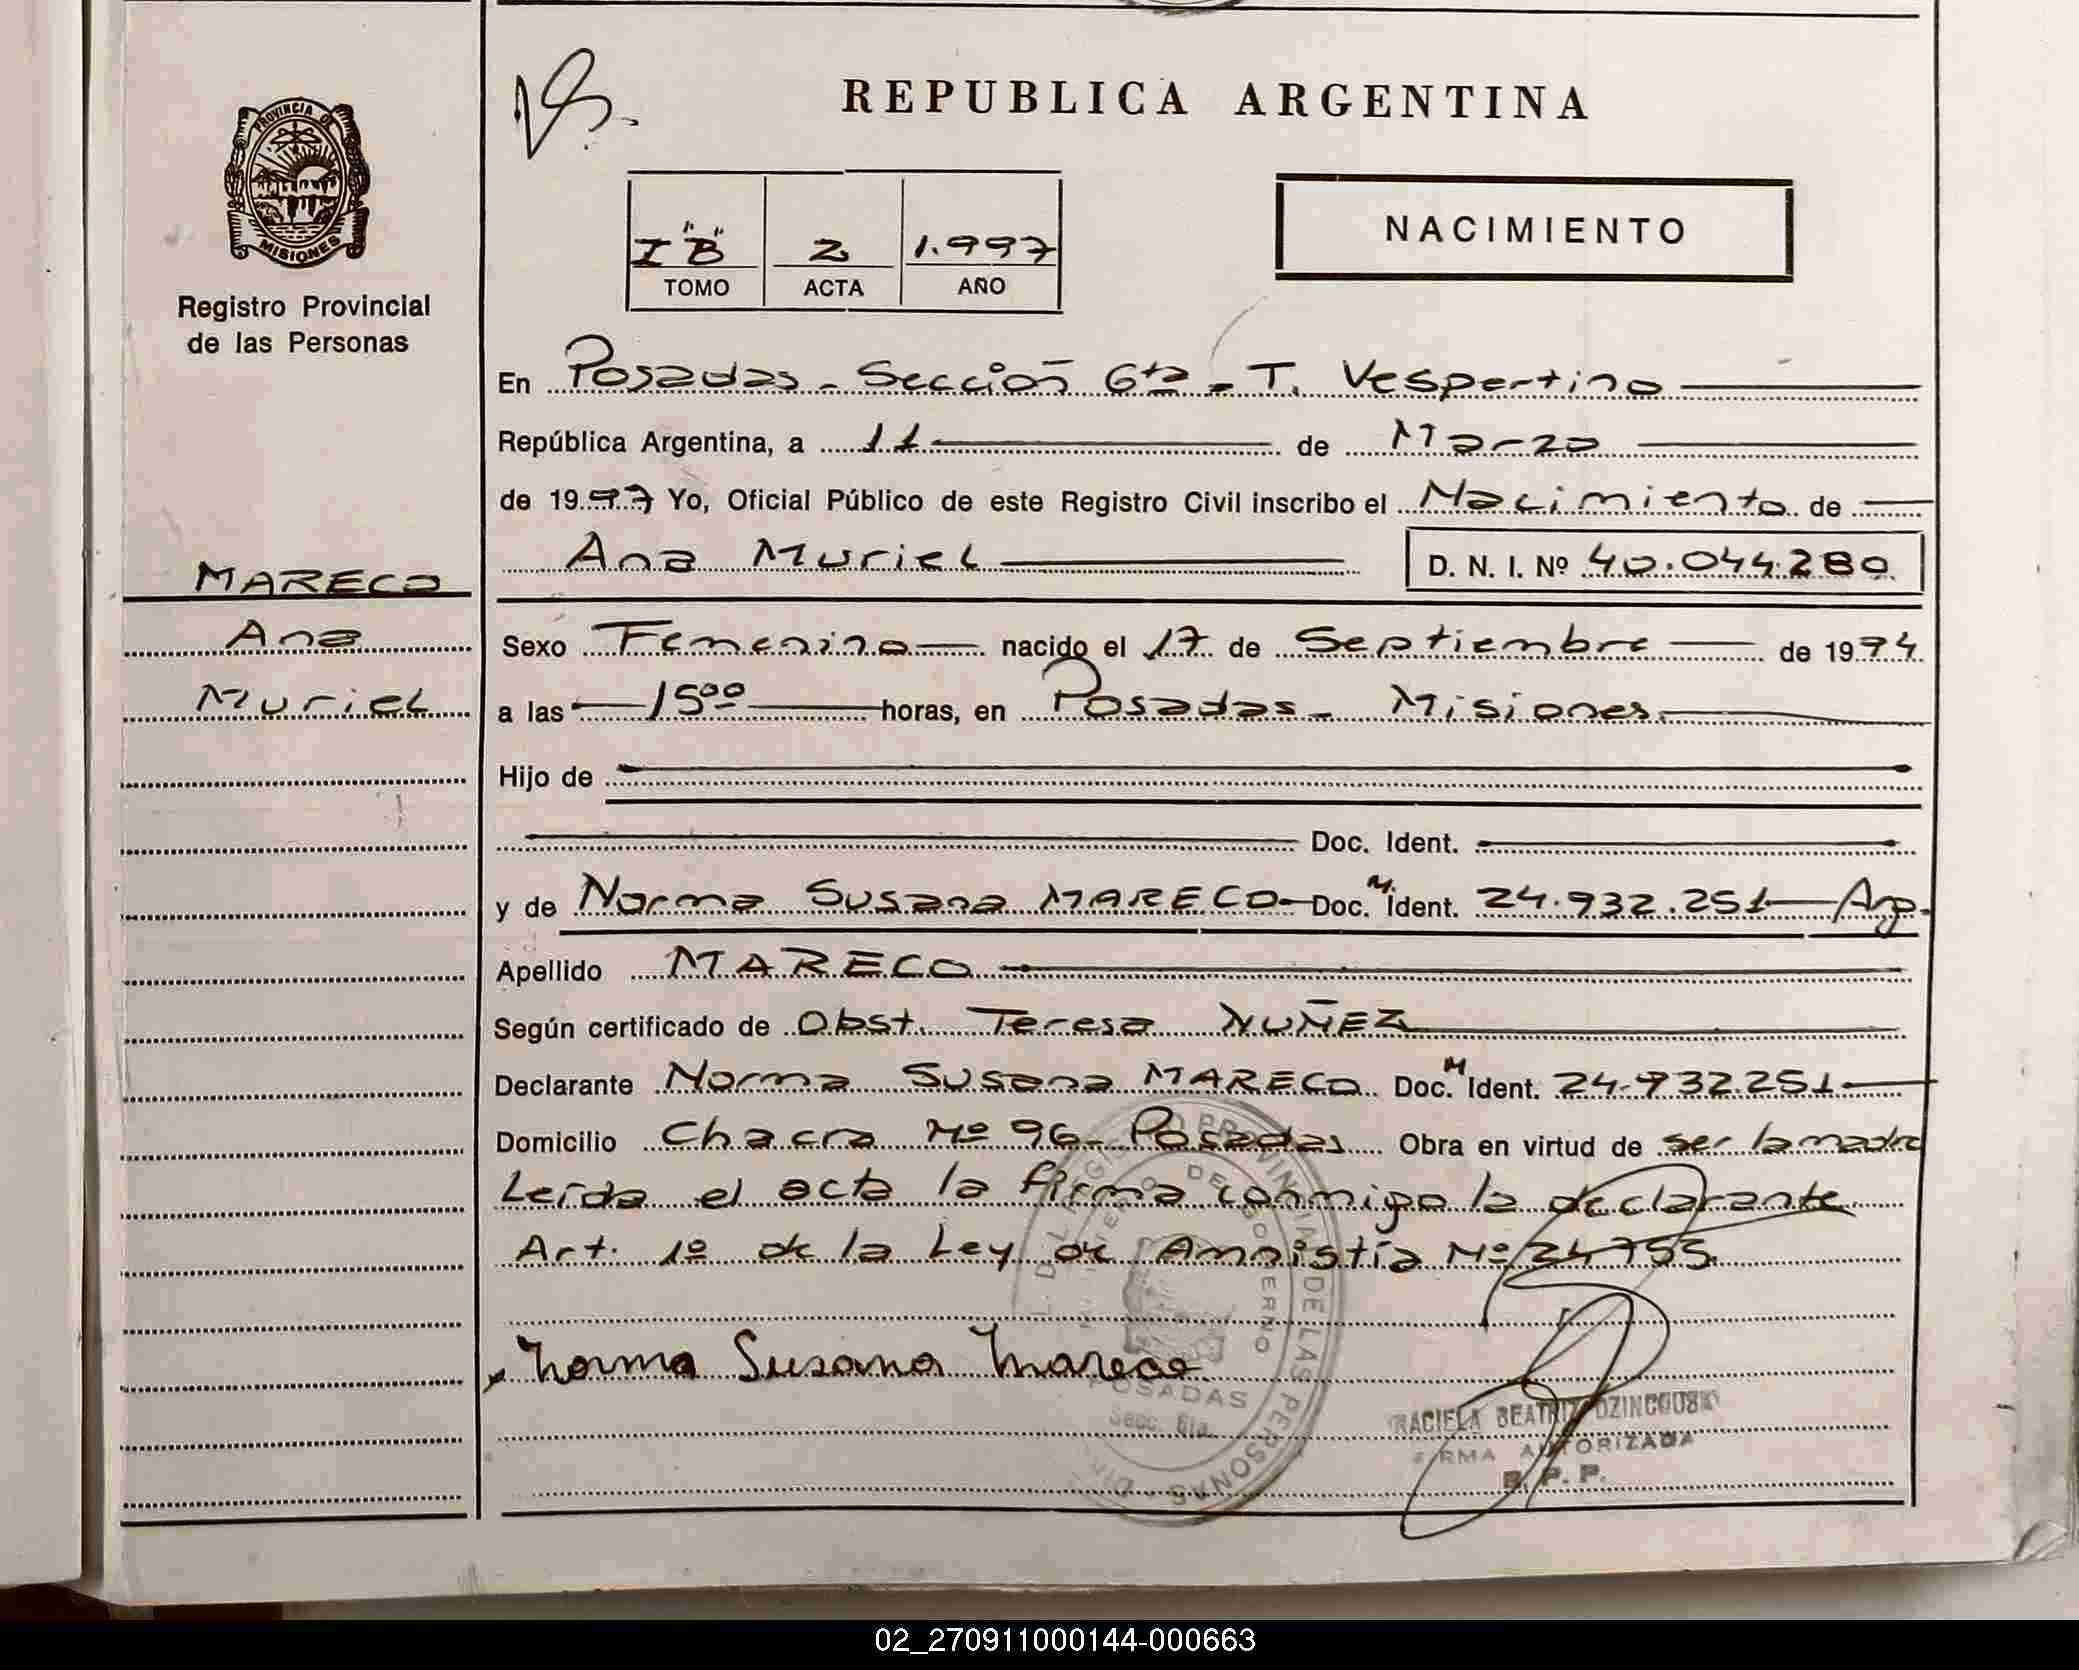 REPUBLICA ARGENTINA
PROVINCIA DE MISIONES
Registro Provincial
de las Personas
I "B" 2 1.997
TOMO ACTA AÑO
NACIMIENTO
En Posadas - Sección 6ta - T. Vespertino
República Argentina, a 11 de Marzo
de 1997 Yo, Oficial Público de este Registro Civil inscribo el Nacimiento de
Ana Muriel D. N. I. Nº 40.044.280
MARECO
Ana
Muriel
Sexo Femenino nacido el 17 de Septiembre de 1994
a las 15⁰⁰ horas, en Posadas - Misiones.
Hijo de
Doc. Ident.
y de Norma Susana MARECO Doc. M. Ident. 24.932.251 Arg.
Apellido MARECO
Según certificado de Obst. Teresa NUÑEZ
Declarante Norma Susana MARECO Doc. M Ident. 24.932.251
Domicilio Chacra Nº 96 - Posadas Obra en virtud de ser la madre
Leída el acta la firma conmigo la declarante
Art. 1º de la Ley de Amnistía Nº 24755
Norma Susana Mareco
POSADAS
Secc. 6ta.
FIRMA AUTORIZADA
R. P. P.
02_270911000144-000663